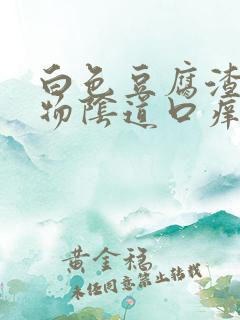 白色豆腐渣
物陰道口癢
黄金稳
未经同意禁止转载